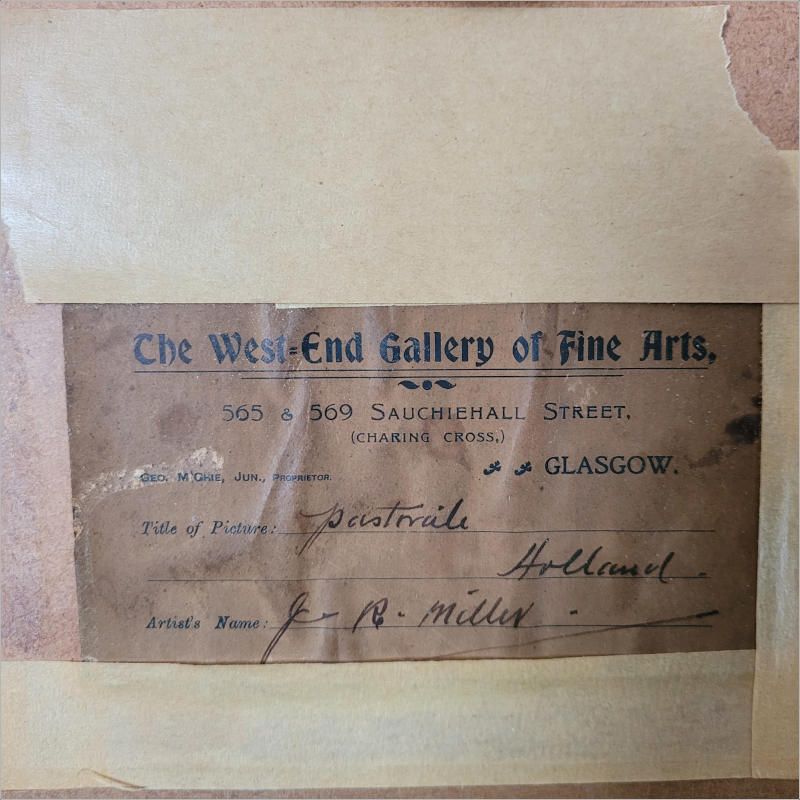 The West-End Gallery of Fine Arts,
565 & 569 SAUCHIEHALL STREET,
(CHARING CROSS,)
GLASGOW.
GEO. M'GHIE, JUN., PROPRIETOR.
Title of Picture: Pastorale
Holland.
Artist's Name: J. R. Miller.